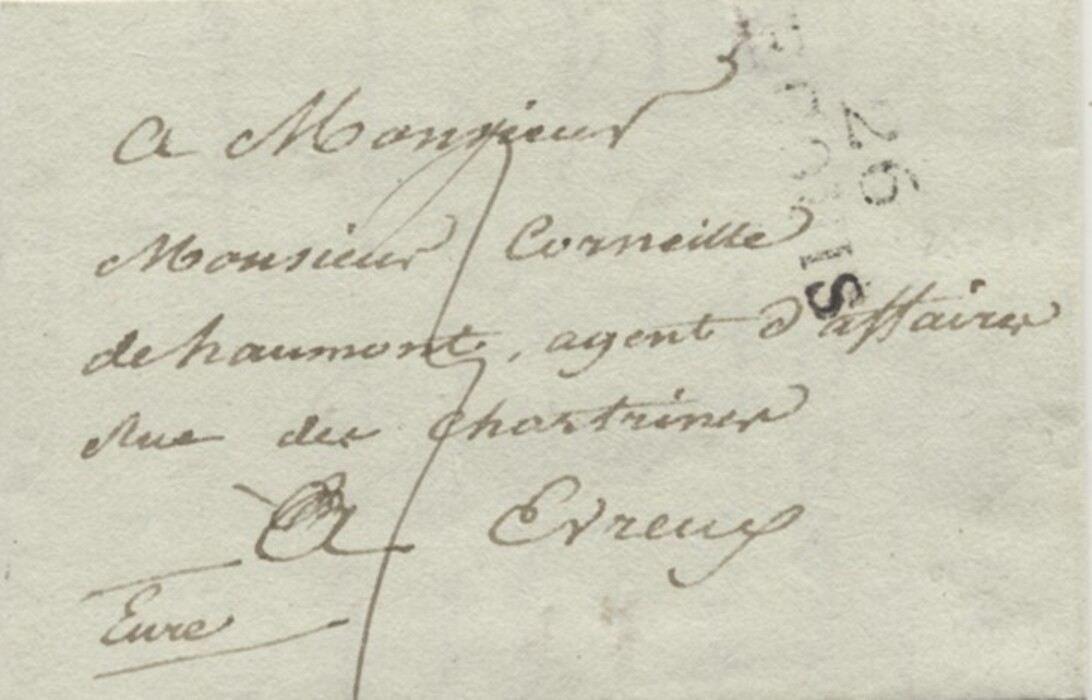 A Monsieur
Monsieur Corneille
dehaumont, agent d'affaires
Rue des Chartrines
A Evreux
Eure
26
ECOUIS